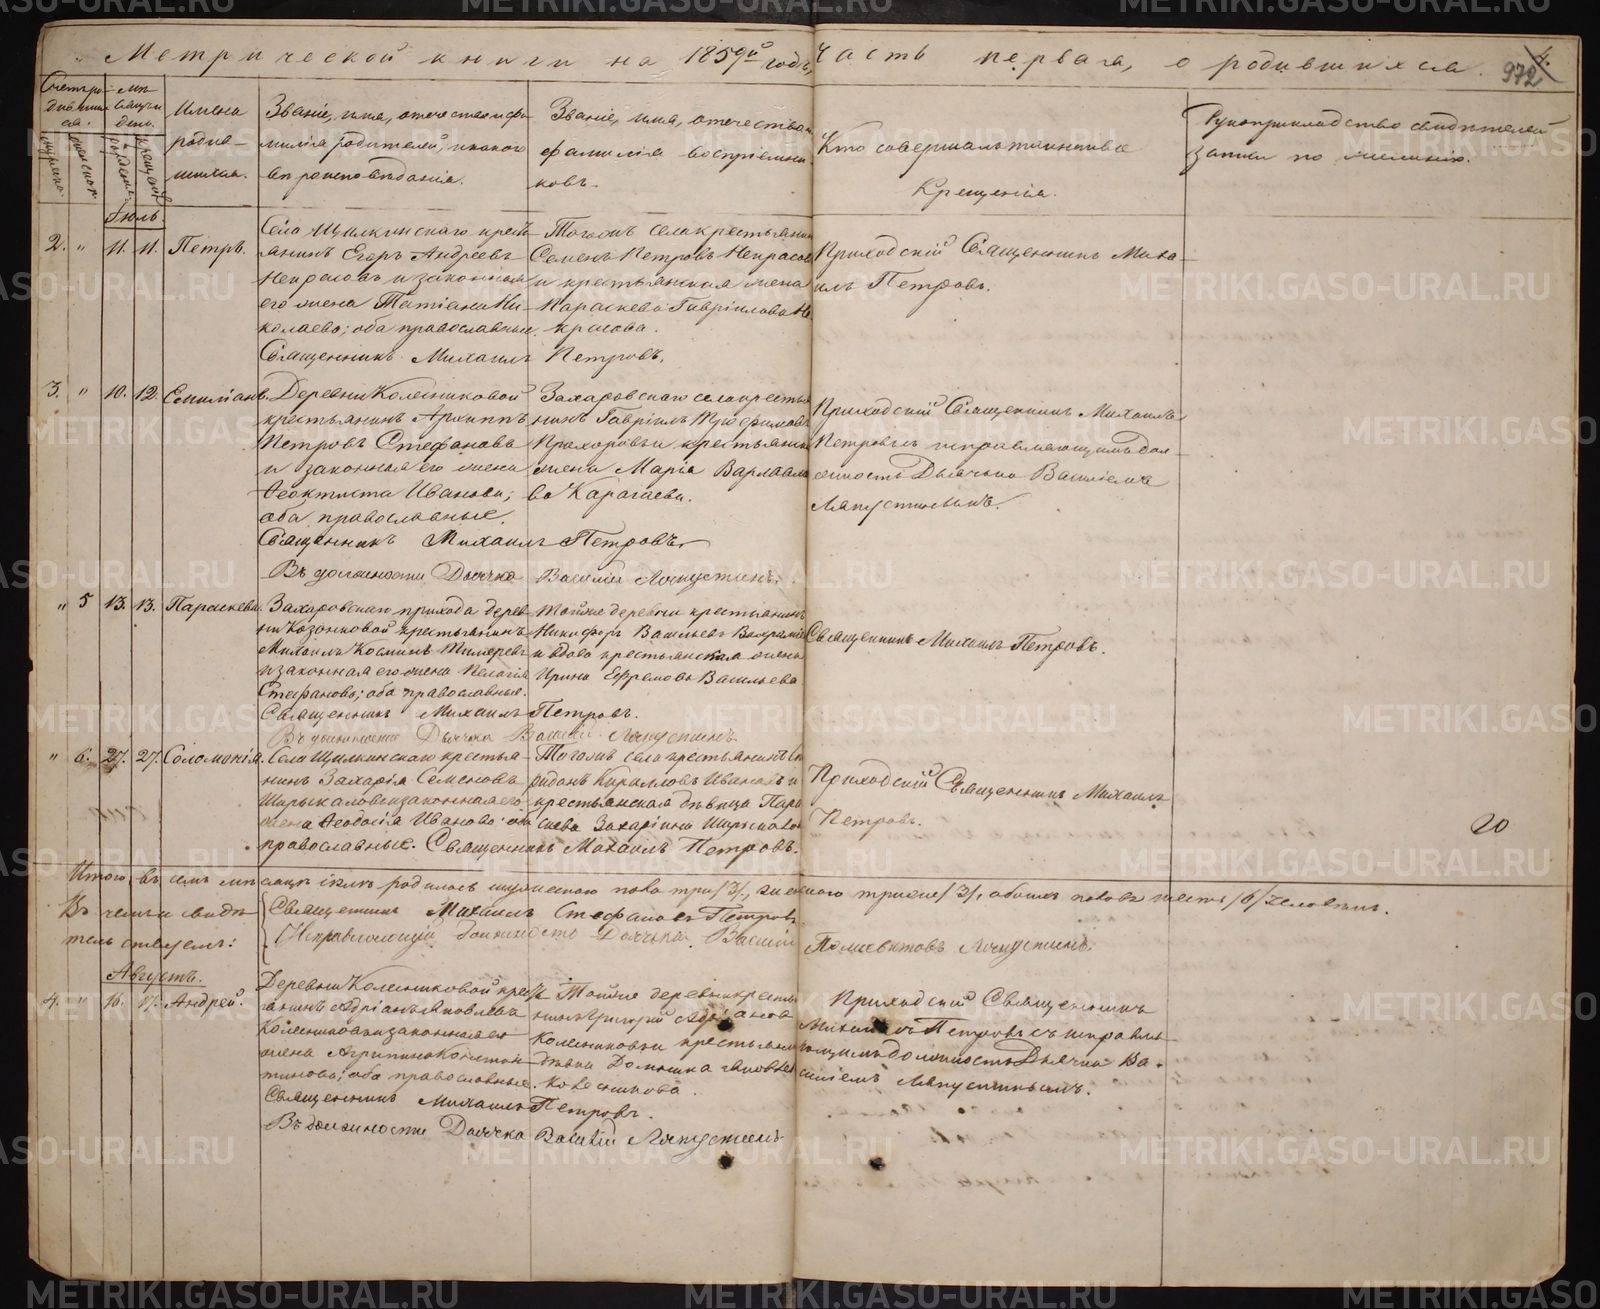 Метрической книги на 1859й годъ, часть первая, о родившихся.
972
Счетъ родившихся.
Мѣсяцъ и день.
Имена родившихся.
Званіе, имя, отечество и фамилія родителей, и какого вѣроисповѣданія.
Званіе, имя, отечество и фамилія воспріемниковъ.
Кто совершалъ таинство Крещенія.
Рукоприкладство свидѣтелей записи по желанію.
мужеска.
женска.
рожденія.
крещенія.
Іюль.
2. " 11. 11. Петръ.
Села Щилкинскаго крестьянинъ Егоръ Андреевъ
Некрасовъ и законная
его жена Татіана Николаева; оба православные.
Тогожъ села крестьянинъ
Семенъ Петровъ Некрасовъ
и крестьянская жена
Параскева Гавріилова Некрасова.
Приходскій Священникъ Михаилъ Петровъ.
Священникъ Михаилъ Петровъ.
3. " 10. 12. Емиліанъ.
Деревни Колесниковой
крестьянинъ Архиппъ
Петровъ Стефановъ
и законная его жена
Ѳеоктиста Иванова;
оба православные.
Захаровскаго села крестьянинъ Гавріилъ Трофимовъ
Прохоровъ и крестьянская
жена Марія Варлаамова Карагаева.
Приходскій Священникъ Михаилъ
Петровъ съ исправляющимъ должность Дьячка Василіемъ
Ляпустинымъ.
Священникъ Михаилъ Петровъ.
Въ должности Дьячка Василій Ляпустинъ.
" 5 13. 13. Параскева.
Захаровскаго прихода деревни Казанковой крестьянинъ
Михаилъ Косминъ
и законная его жена Пелагія
Стефанова; оба православные.
Тойже деревни крестьянинъ
Никифоръ Васильевъ
и вдова крестьянская жена
Ирина Ефремова Васильева
Священникъ Михаилъ Петровъ.
Священникъ Михаилъ Петровъ.
Въ должности Дьячка Василій Ляпустинъ.
" 6. 27. 27. Соломонія.
Села Щилкинскаго крестьянинъ Захарія Семеновъ
Ширыкаловъ и законная его
жена Ѳеодосія Иванова; оба
православные.
Тогожъ села крестьянинъ Спиридонъ Кирилловъ Ивановъ и
крестьянская дѣвица Параскева Захаріина Ширыкалова
Приходскій Священникъ Михаилъ
Петровъ.
20
Священникъ Михаилъ Петровъ.
Итого въ семъ мѣсяцѣ іюлѣ родилось мужескаго пола три /3/, женскаго трое /3/, обоихъ половъ шесть /6/ человѣкъ.
Въ чемъ и свидѣтельствуемъ:
Священникъ Михаилъ Стефановъ Петровъ
Исправляющій должность Дьячка Василій Поліевктовъ Ляпустинъ.
Августъ.
4. " 16. 17. Андрей.
Деревни Колесниковой крестьянинъ Адріанъ Яковлевъ
Колесниковъ и законная его
жена Агрипина Константинова; оба православные.
Тойже деревни крестьянинъ Григорій Адріановъ
Колесниковъ и крестьянская
дѣвка Домника Яковлева
Колесникова.
Приходскій Священникъ
Михаилъ Петровъ съ исправляющимъ должность Дьячка Василіемъ Ляпустинымъ.
Священникъ Михаилъ Петровъ.
Въ должности Дьячка Василій Ляпустинъ
METRIKI.GASO-URAL.RU